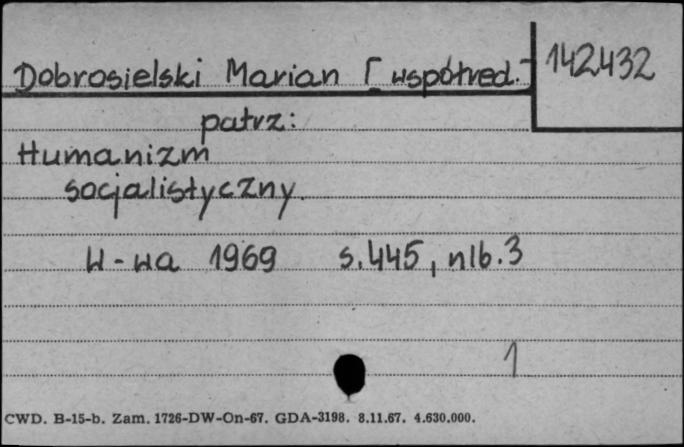 Dobrosielski Marian [współred.] 142432
patrz:
Humanizm
socjalistyczny.
W-wa 1969 s.445, nlb.3
1
CWD. B-15-b. Zam. 1726-DW-On-67. GDA-3198. 8.11.67. 4.630.000.